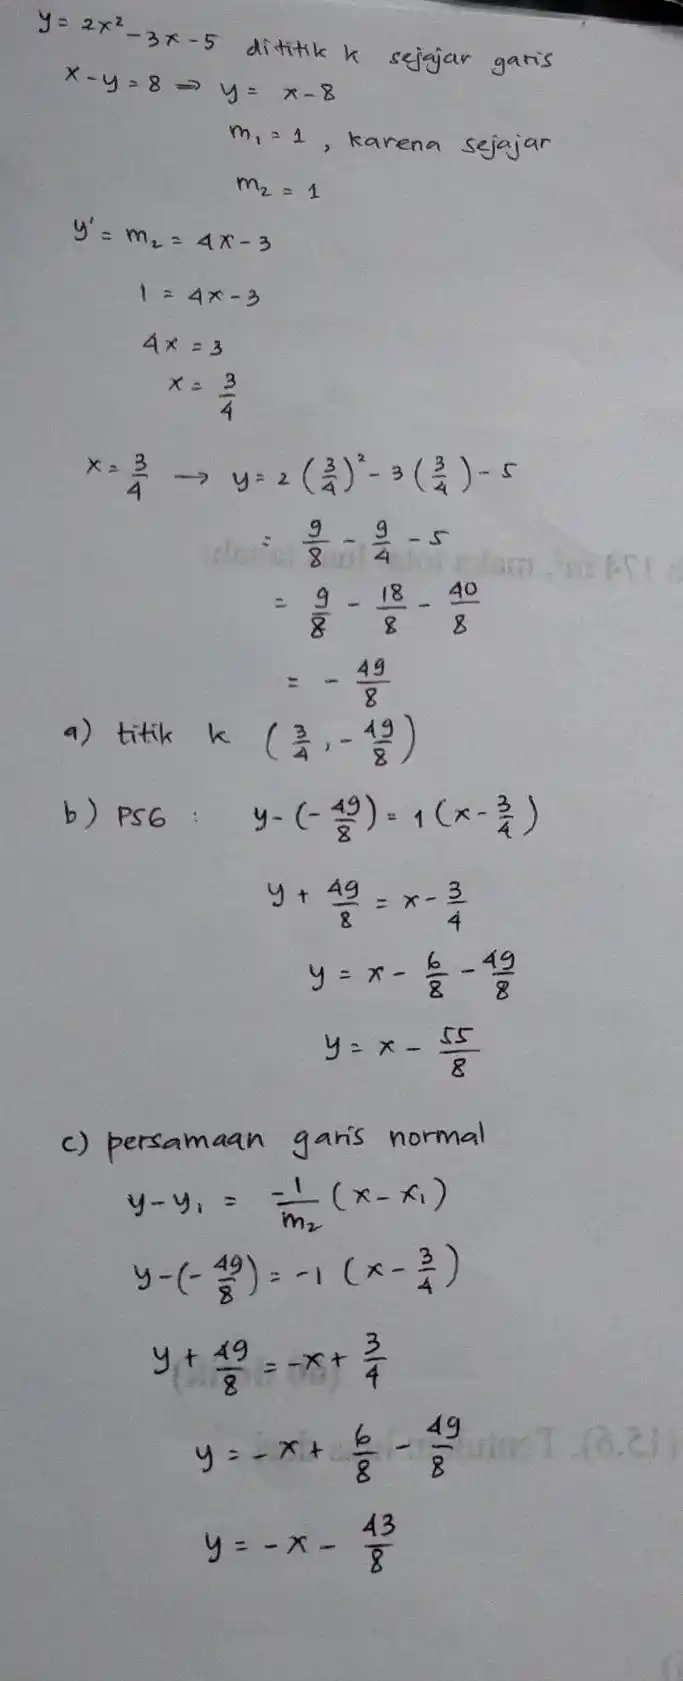 y = 2x² - 3x - 5 dititik k sejajar garis
x - y = 8 ⇒ y = x - 8
m₁ = 1, karena sejajar
m₂ = 1
y' = m₂ = 4x - 3
1 = 4x - 3
4x = 3
x = 3/4
x = 3/4 → y = 2(3/4)² - 3(3/4) - 5
= 9/8 - 9/4 - 5
= 9/8 - 18/8 - 40/8
= - 49/8
a) titik k (3/4, - 49/8)
b) PSG : y - (- 49/8) = 1(x - 3/4)
y + 49/8 = x - 3/4
y = x - 6/8 - 49/8
y = x - 55/8
c) persamaan garis normal
y - y₁ = -1/m₂ (x - x₁)
y - (- 49/8) = -1 (x - 3/4)
y + 49/8 = -x + 3/4
y = -x + 6/8 - 49/8
y = -x - 43/8